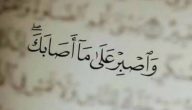 وَٱصْبِرْ عَلَىٰ مَآ أَصَابَكَ